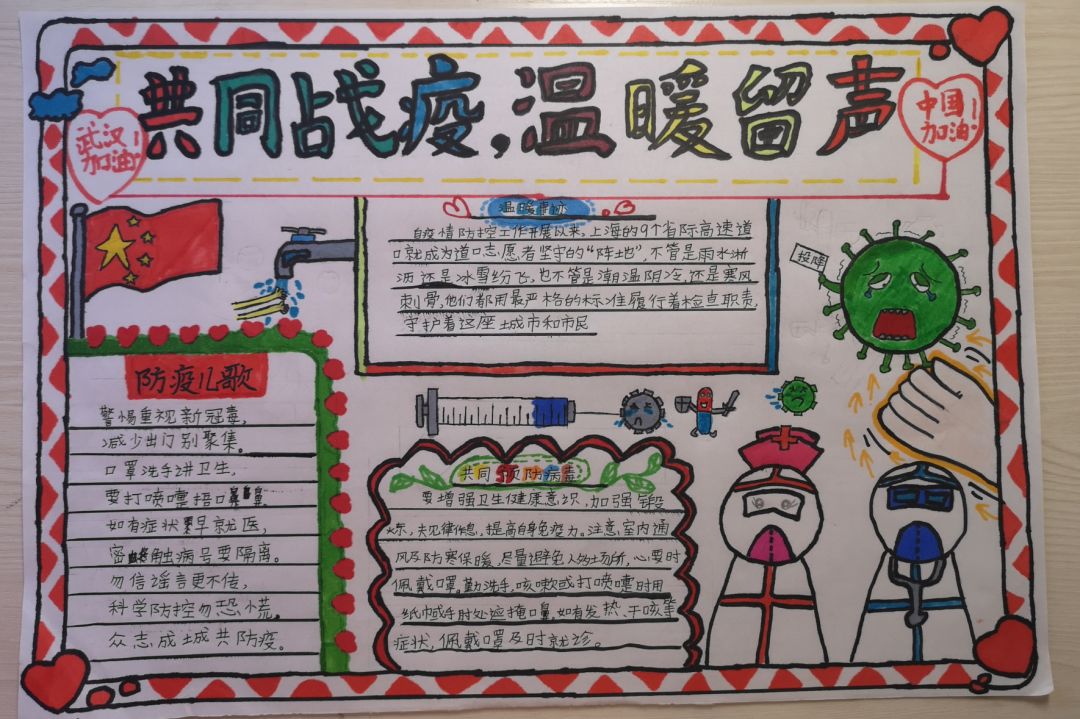 共同战疫,温暖留声
武汉
加油!
中国
加油!
温暖事迹
自疫情防控工作开展以来,上海的9个省际高速道
口就成为道口志愿者坚守的“阵地”,不管是雨水淋
沥还是冰雪纷飞,也不管是潮湿阴冷,还是寒风
刺骨,他们都用最严格的标准履行着检查职责,
守护着这座城市和市民
投降
防疫儿歌
警惕重视新冠毒,
减少出门别聚集。
口罩洗手讲卫生,
要打喷嚏捂口鼻
如有症状早就医,
密触病号要隔离。
勿信谣言更不传,
科学防控勿恐慌。
众志成城共防疫。
共同预防病毒
要增强卫生健康意识,加强锻
炼,规律作息,提高自身免疫力。注意室内通
风及防寒保暖,尽量避免人多场所,必要时
佩戴口罩。勤洗手,咳嗽或打喷嚏时用
纸巾或手肘处遮掩口鼻,如有发热、干咳等
症状,佩戴口罩及时就诊。